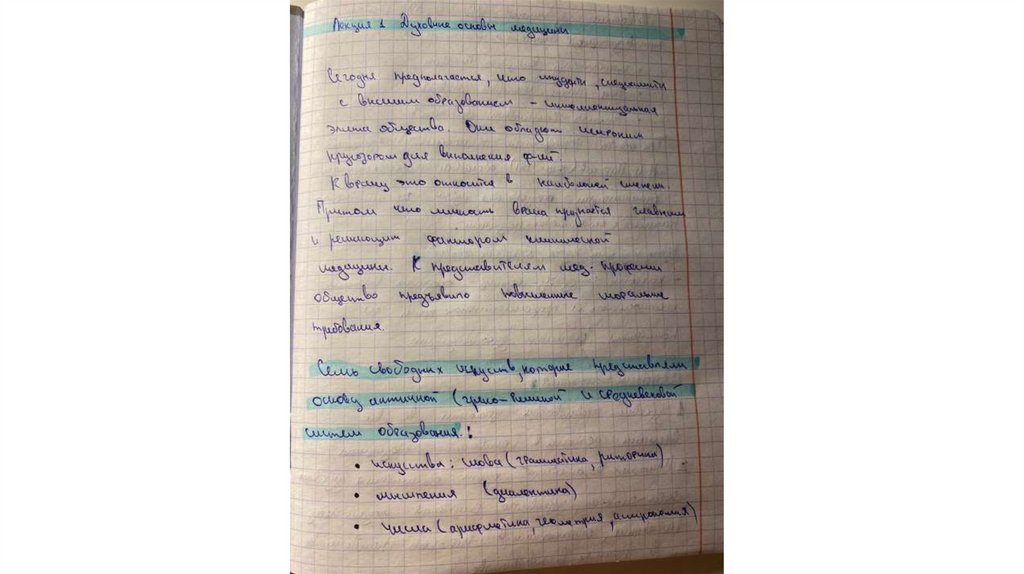 Лекция 1 Духовные основы медицины
Сегодня предполагается, что студенты, специалисты
с высшим образованием - интеллектуальная
элита общества. Они обладают широким
кругозором для выполнения ф-ий.
К врачу это относится в наибольшей степени.
Притом что личность врача признается главным
и решающим фактором клинической
медицины. К представителям мед. профессии
общество предъявило повышенные моральные
требования.
Семь свободных искуств, которые представляли
основу античной (греко-римской и средневековой
систем образования.:
• искуства: слова (грамматика, риторика)
• мышления (диалектика)
• числа (арифметика, геометрия, астрономия)